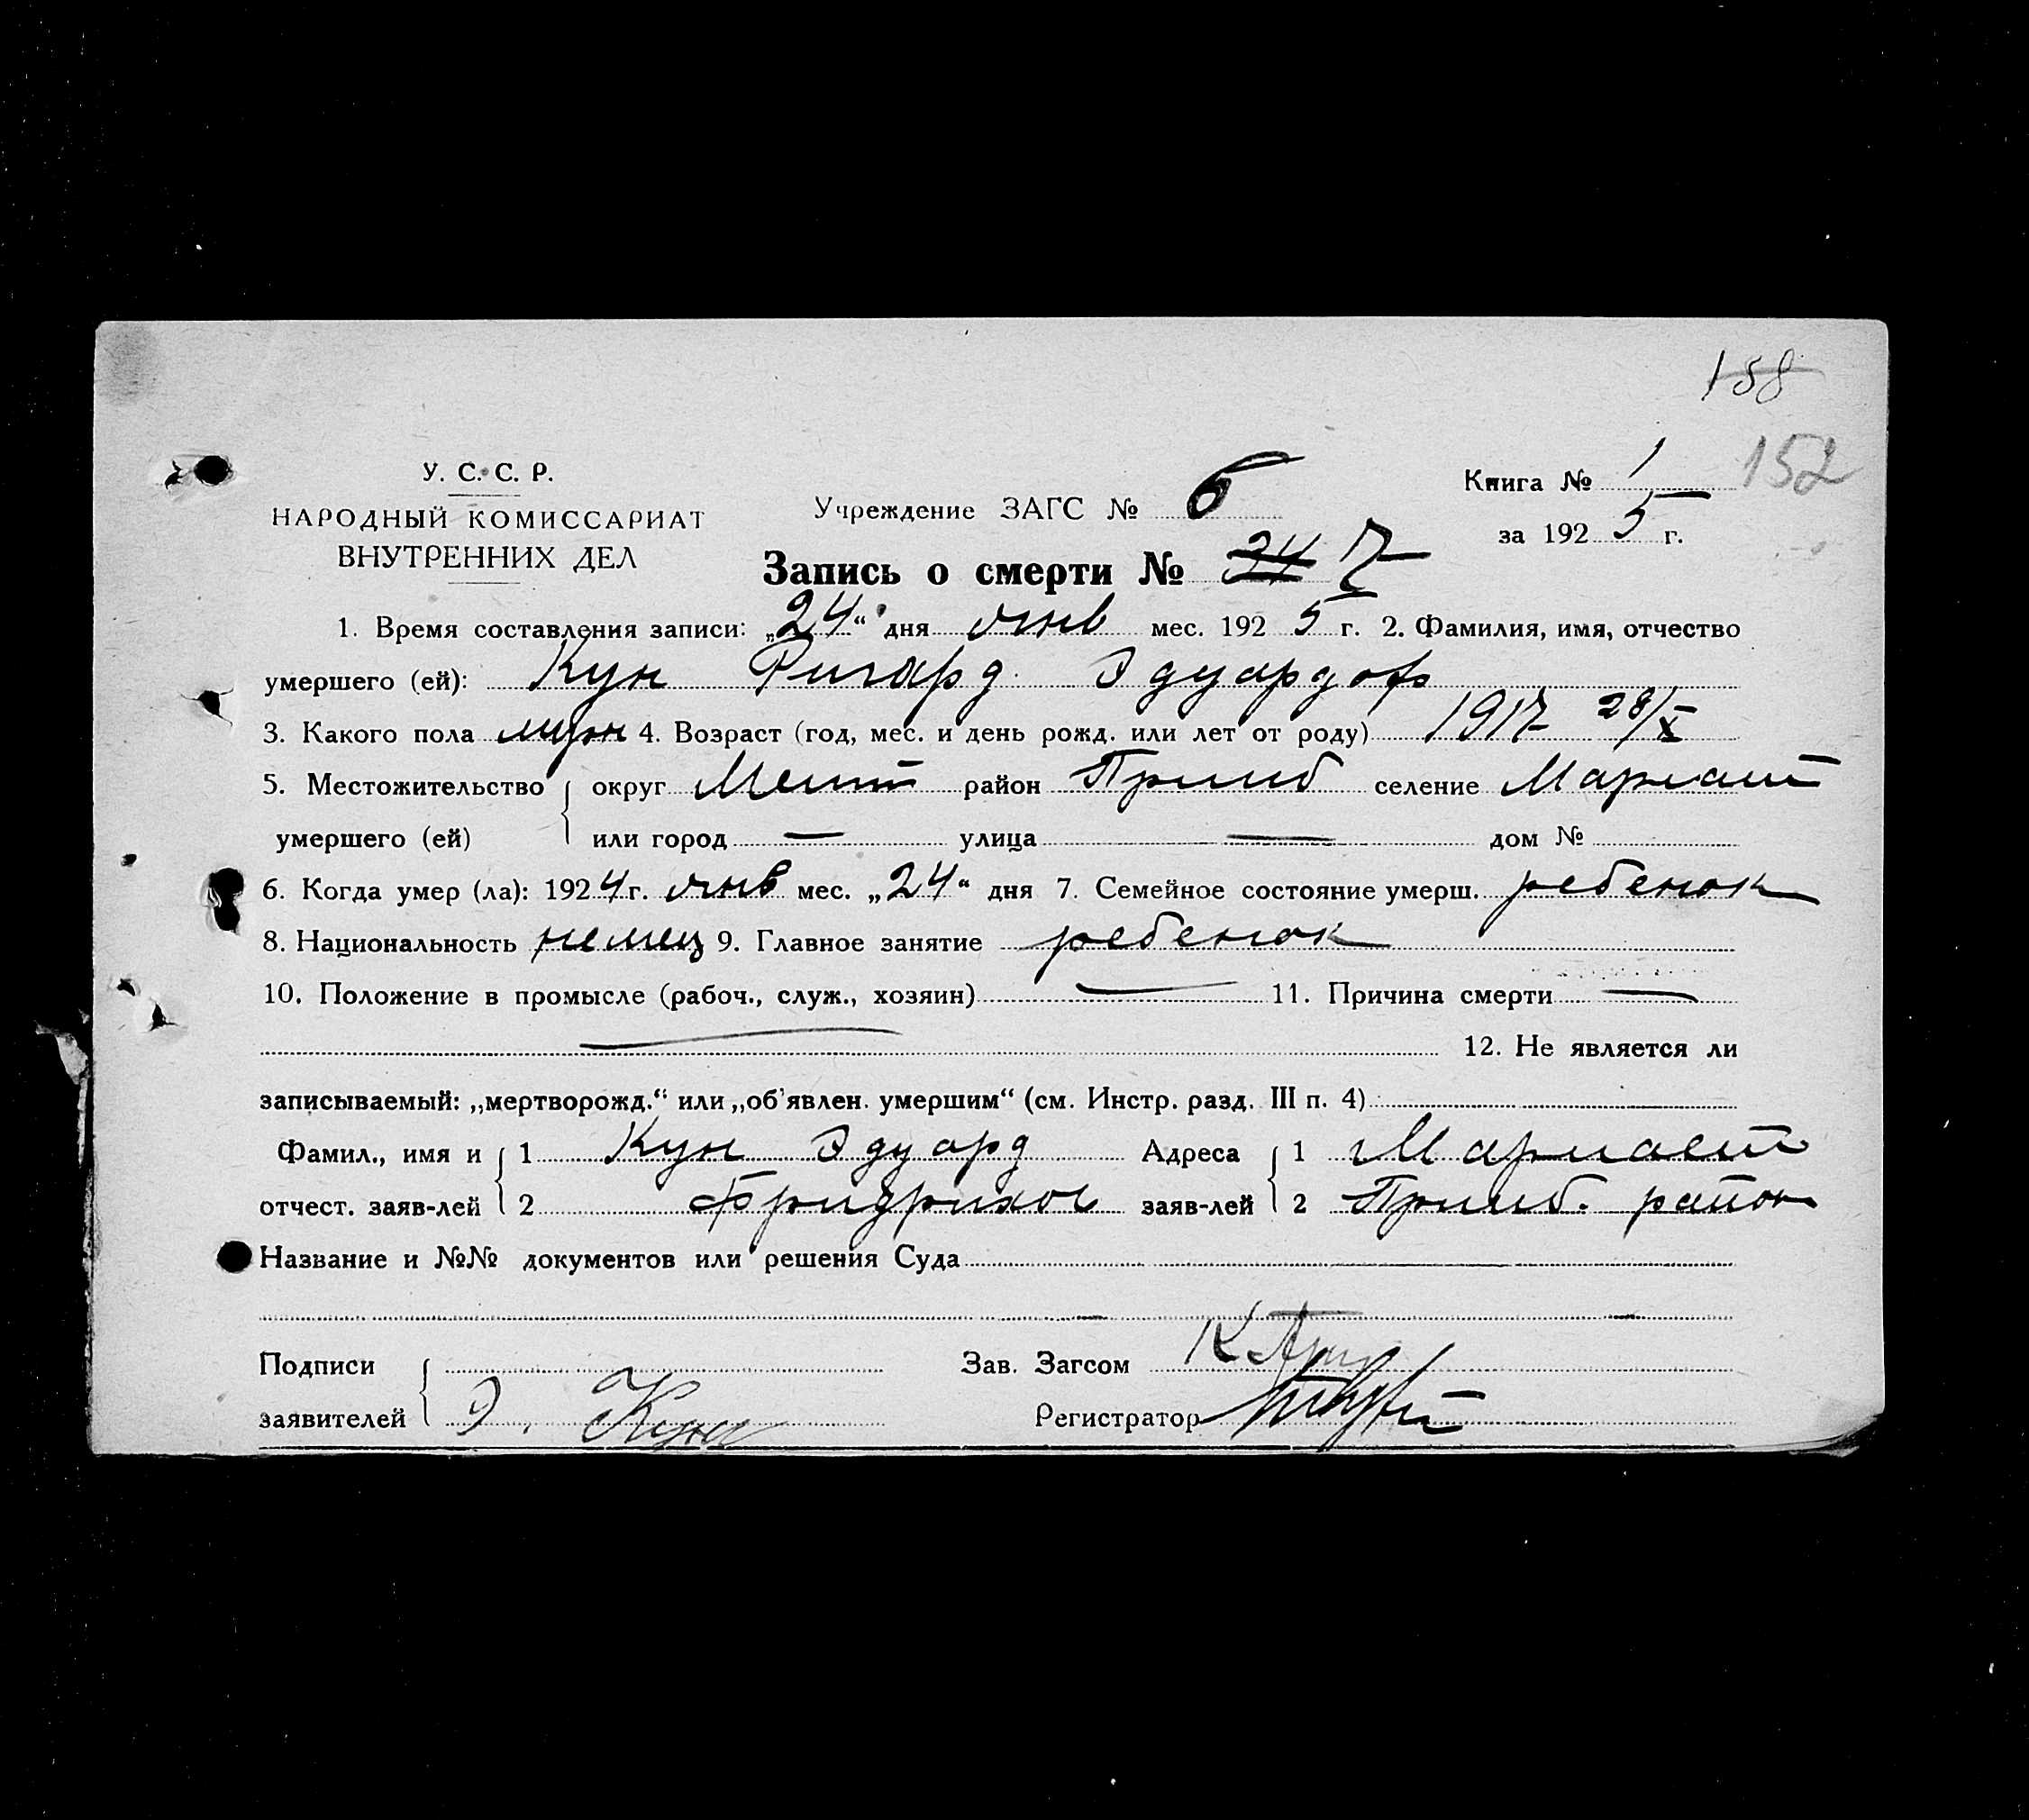 158
152
У. С. С. Р.
НАРОДНЫЙ КОМИССАРИАТ
ВНУТРЕННИХ ДЕЛ
Учреждение ЗАГС № 6
Книга № 1
за 1925 г.
Запись о смерти № 24 7
1. Время составления записи: „24“ дня янв мес. 1925 г. 2. Фамилия, имя, отчество
умершего (ей): Кун Рихард Эдуардов
3. Какого пола муж 4. Возраст (год, мес. и день рожд. или лет от роду) 1917 28/X
5. Местожительство округ Мелит район Пришиб селение
умершего (ей) или город — улица — дом №
6. Когда умер (ла): 1924 г. янв мес. „24“ дня 7. Семейное состояние умерш. ребенок
8. Национальность немец 9. Главное занятие ребенок
10. Положение в промысле (рабоч., служ., хозяин) — 11. Причина смерти —
— 12. Не является ли
записываемый: „мертворожд.“ или „об'явлен. умершим“ (см. Инстр. разд. III п. 4)
Фамил., имя и 1 Кун Эдуард Адреса 1
отчест. заяв-лей 2 Фридрихов заяв-лей 2 Пришиб. район
Название и №№ документов или решения Суда
Подписи Зав. Загсом
заявителей Э. Кун Регистратор